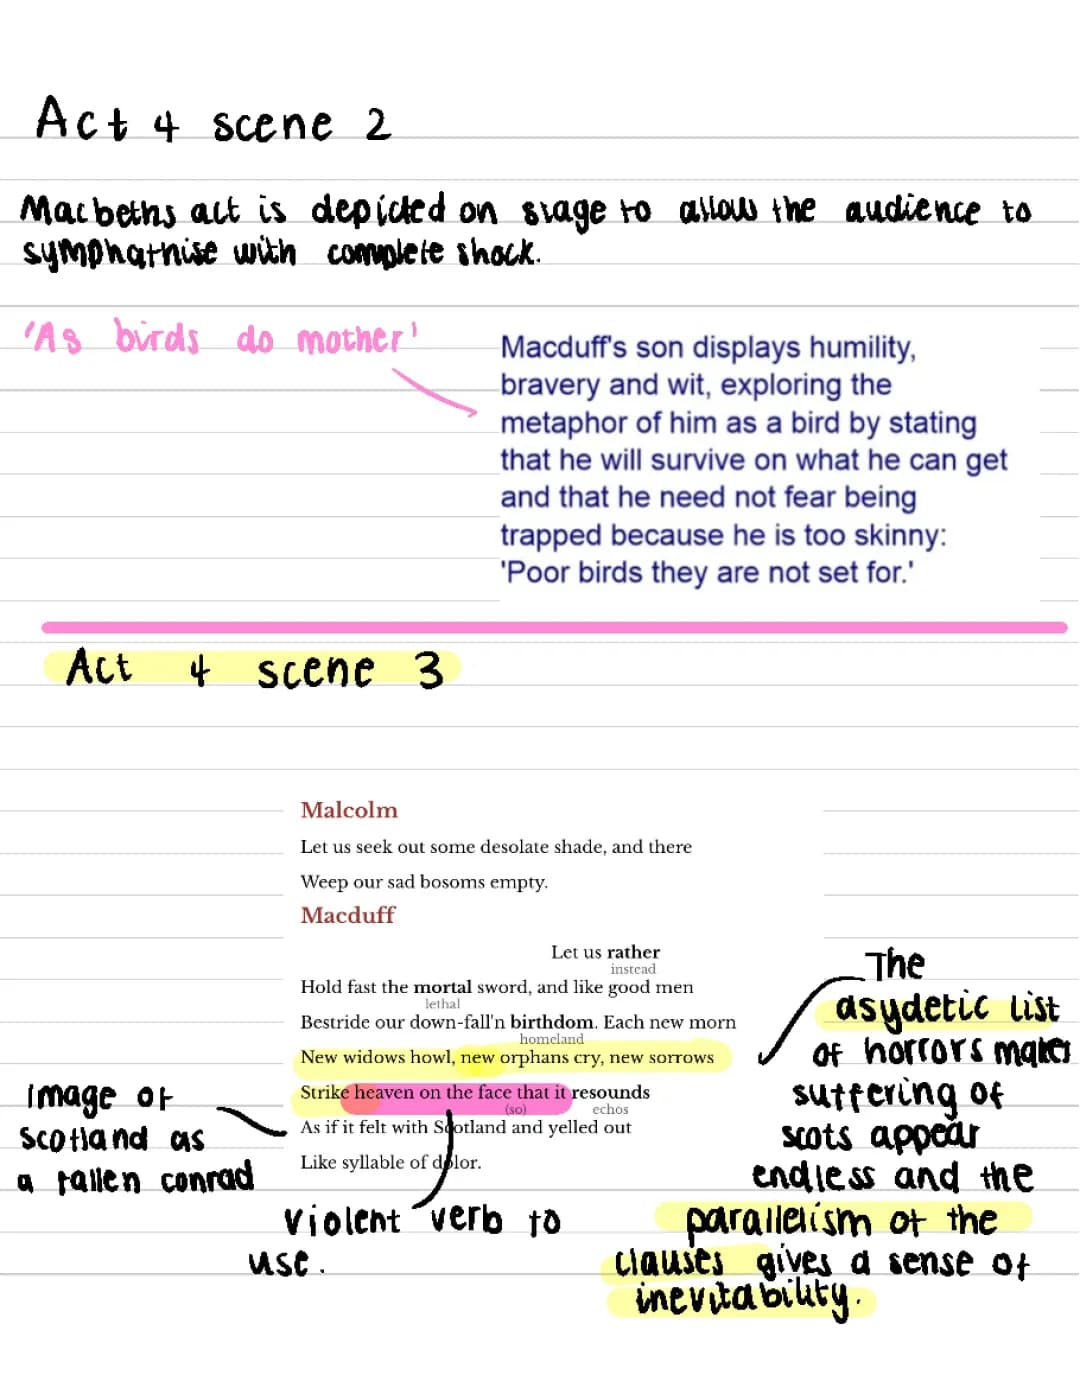 Act 4 scene 2
Macbeths act is depicted on stage to allow the audience to
symphathise with complete shock.
'As birds do mother'
Macduff's son displays humility,
bravery and wit, exploring the
metaphor of him as a bird by stating
that he will survive on what he can get
and that he need not fear being
trapped because he is too skinny:
'Poor birds they are not set for.'
Act 4 scene 3
Malcolm
Let us seek out some desolate shade, and there
Weep our sad bosoms empty.
Macduff
Let us rather
instead
Hold fast the mortal sword, and like good men
lethal
Bestride our down-fall'n birthdom. Each new morn
homeland
New widows howl, new orphans cry, new sorrows
Strike heaven on the face that it resounds
(so) echos
As if it felt with Scotland and yelled out
Like syllable of dolor.
Image of
Scotland as
a fallen conrad
Violent verb to
use.
The
asydetic list
of horrors makes
suffering of
scots appear
endless and the
parallelism of the
clauses gives a sense of
inevitability.